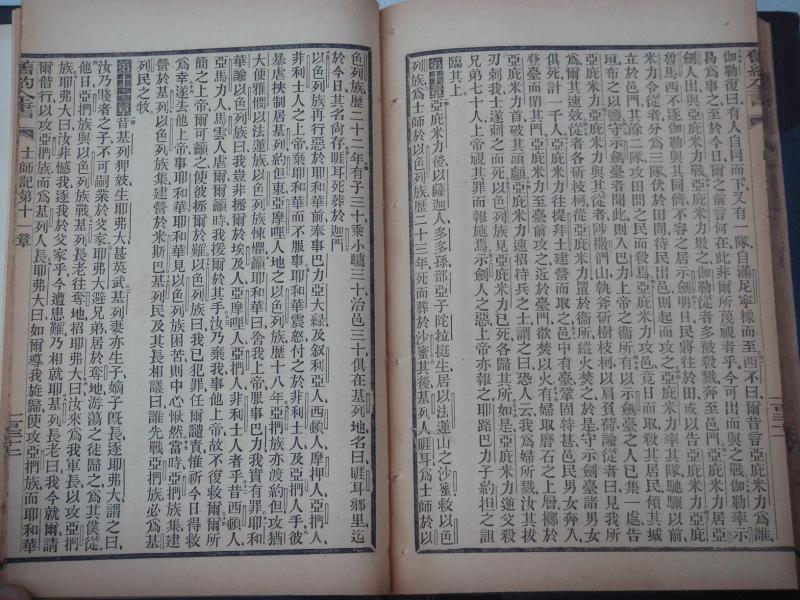 舊約全書
伽勒復曰有人自岡而下又有一隊自滿尼寧橡而至西不曰爾昔言亞庇米力爲誰
曷爲事之至於今日爾之前言何在此非爾所蔑視者乎今可出而與之戰伽勒率示
劍人出與亞庇米力戰亞庇米力敗之伽勒從者多被殺戮奔至邑門亞庇米力居亞
魯馬西不逐伽勒與其同儕不容之居示劍明日民將往於田或以告亞庇米力亞庇
米力令從者分爲三隊伏於田間待民出邑則起而攻之亞庇米力率其隊馳驟以前
立於邑門其餘二隊攻田間之民而殺焉亞庇米力攻邑竟日而取殺其居民傾其城
垣布之以鹽守示劍臺者聞此則入巴力上帝之衞所有以示劍臺之人已集一處告
亞庇米力者亞庇米力與其從者陟撒們山執斧斫樹枝柯以肩負荷諭從者曰見我所
爲爾其速效之於是各斫枝柯從亞庇米力置於衞所縱火焚之於是守示劍臺諸男女
俱死計一千人亞庇米力往提拜土建營而取之邑中有臺鞏固特甚邑民男女奔入
登臺而閉其門亞庇米力至臺前攻之近於臺門欲焚以火有婦取磨石之上層擲於
亞庇米力首破其頭顱亞庇米力速招持兵之士謂之曰恐人云我爲婦所戮汝其拔
刃刺我士遂刺之而死以色列人見亞庇米力已死各歸其所如是亞庇米力遜父殺
兄弟七十人上帝視其罪而報施焉示劍人之惡上帝亦報之耶路巴力子約担之詛
臨其上
第十章亞庇米力後以薩迦人多多孫部亞子陀拉挺生居以法蓮山之沙蜜救以色
列族爲士師於以色列族歷二十三年死而葬於沙蜜其後基列人睚耳爲士師於以
色列族歷二十二年有子三十乘小驢三十治邑三十俱在基列地名曰睚耳鄉里迄
於今日其名尙存睚耳死葬於迦門
以色列族再行惡於耶和華前奉事巴力亞大綠及叙利亞人西頓人摩押人亞捫人
非利士人之上帝棄耶和華而不服事耶和華震怒付之於非利士人及亞捫人手彼
暴虐挾制居基列約但東亞摩哩人地之以色列族歷十八年亞捫族亦渡約但攻猶
大便雅憫以法蓮族以色列族悚懼籲耶和華曰舍我上帝服事巴力我實有罪耶和
華諭以色列族曰我豈非拯爾於埃及人亞摩哩人亞捫人非利士人者乎昔西頓人
亞馬力人馬雲人虐爾爾籲時我援爾於其手汝乃棄我事他上帝故不復救爾爾所
簡之上帝爾可籲之使彼拯爾於難以色列族曰我已犯罪任爾譴責惟祈今日得救
爲幸遂去他上帝事耶和華耶和華見以色列族困苦則中心惻然當時亞捫族集建
營於基列以色列族集建營於米斯巴基列民及其長相議曰誰先戰亞捫族必爲基
列民之牧
第十一章昔基列狎妓生耶弗大甚英武基列妻亦生子嫡子旣長逐耶弗大謂之曰
汝乃賤者之子不可嗣業於父家耶弗大避兄弟居於奪地游蕩之徒歸之爲其僕從
他日亞捫族與以色列族戰基列長老往奪地招耶弗大曰汝來爲我軍長以攻亞捫
族耶弗大曰汝非憾我逐我於父家乎今遭患難乃相就耶基列長老曰我今就爾請
爾偕行以攻亞捫族而爲基列人長耶弗大曰如爾尊我旋歸使攻亞捫族而耶和華
舊約全書
士師記第十一章